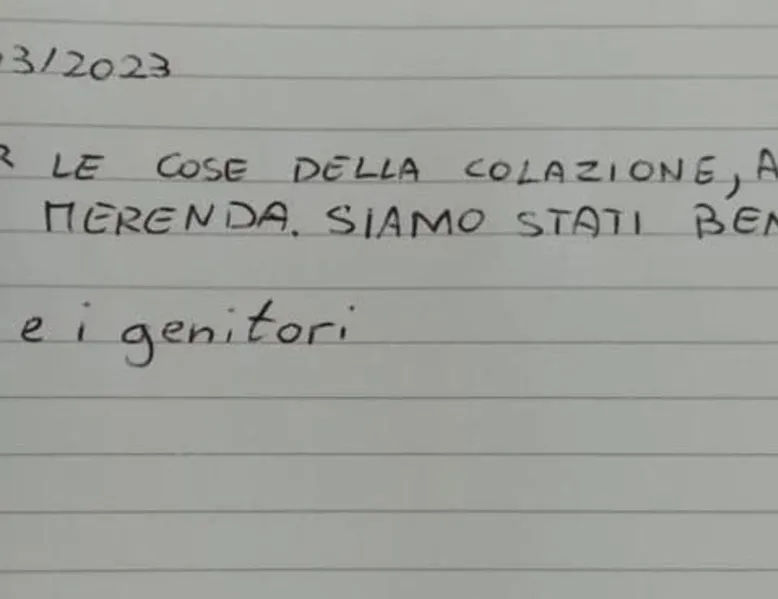 3/2023
R LE COSE DELLA COLAZIONE, A
MERENDA. SIAMO STATI BEN
e i genitori